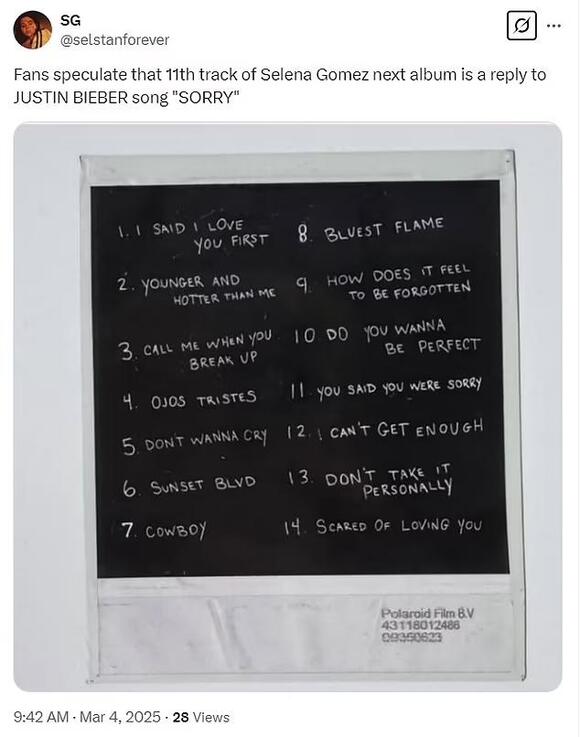 SG
@selstanforever
Fans speculate that 11th track of Selena Gomez next album is a reply to
JUSTIN BIEBER song "SORRY"
1. I SAID I LOVE
YOU FIRST
2. YOUNGER AND
HOTTER THAN ME
3. CALL ME WHEN YOU
BREAK UP
4. OJOS TRISTES
5. DON'T WANNA CRY
6. SUNSET BLVD
7. COWBOY
8. BLUEST FLAME
9. HOW DOES IT FEEL
TO BE FORGOTTEN
10 DO YOU WANNA
BE PERFECT
11. YOU SAID YOU WERE SORRY
12. I CAN'T GET ENOUGH
13. DON'T TAKE IT
PERSONALLY
14. SCARED OF LOVING YOU
Polaroid Film B.V
43118012486
9:42 AM · Mar 4, 2025 · 28 Views